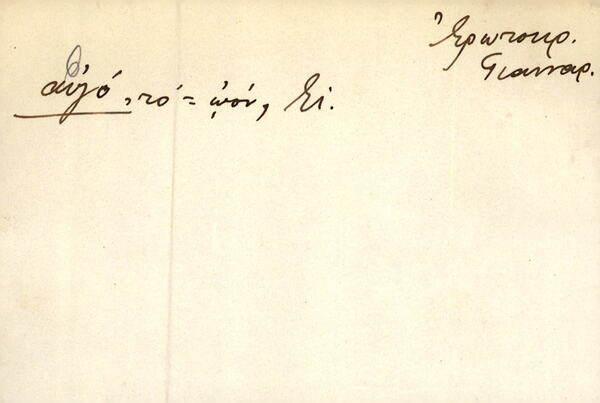 Ἐρωτοκρ.
Γιανναρ.
αὐγό, τό = ᾠόν,